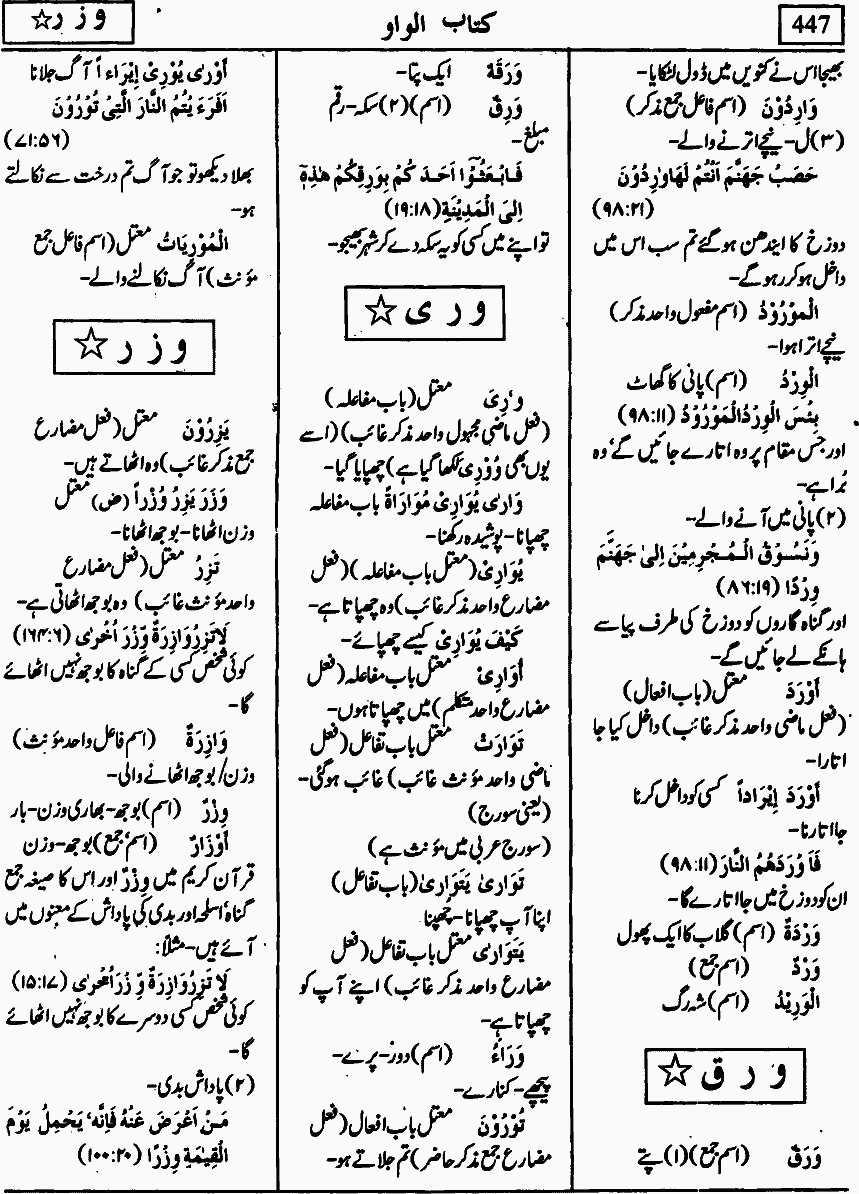 447
کتاب الواو
و ز ر ☆
بھیجا اس نے کنویں میں ڈول لٹکایا۔
وَارِدُوْنَ (اسم فاعل جمع مذکر)
(۳) ل۔ نیچے اترنے والے۔
حَصَبُ جَهَنَّمَ اَنْتُمْ لَهَا وٰرِدُوْنَ
(۹۸:۲۱)
دوزخ کا ایندھن ہو گئے تم سب اس میں
داخل ہو کر رہو گے۔
الْمَوْرُوْدُ (اسم مفعول واحد مذکر)
نیچے اترا ہوا۔
الْوِرْدُ (اسم) پانی کا گھاٹ
بِئْسَ الْوِرْدُ الْمَوْرُوْدُ (۹۸:۱۱)
اور جس مقام پر وہ اتارے جائیں گے ٗ وہ
بُرا ہے۔
(۲) پانی میں آنے والے۔
وَنَسُوْقُ الْمُجْرِمِيْنَ اِلىٰ جَهَنَّمَ
وِرْدًا (۸۶:۱۹)
اور گناہ گاروں کو دوزخ کی طرف پیاسے
ہانکے لے جائیں گے۔
أَوْرَدَ معتل (باب افعال)
(فعل ماضی واحد مذکر غائب) داخل کیا جا
اتارا۔
أَوْرَدَ إِيْرَاداً کسی کو داخل کرنا
جا اتارنا۔
فَاَوْرَدَهُمُ النَّارَ (۹۸:۱۱)
ان کو دوزخ میں جا اتارے گا۔
وَرْدَةٌ (اسم) گلاب کا ایک پھول
وَرْدٌ (اسم جمع)
الْوَرِيْدُ (اسم) شہ رگ
و ر ق ☆
وَرَقٌ (اسم جمع) (۱) پتے
وَرَقَةٌ ایک پتا۔
وَرِقٌ (اسم) (۲) سکہ۔ رقم
مبلغ۔
فَابْعَثُوْٓا اَحَدَكُمْ بِوَرِقِكُمْ هٰذِهٖٓ
اِلَى الْمَدِيْنَةِ (۱۹:۱۸)
تو اپنے میں کسی کو یہ سکہ دے کر شہر بھیجو۔
و ر ی ☆
وٗرِيَ معتل (باب مفاعلہ)
(فعل ماضی مجہول واحد مذکر غائب) (اسے
یوں بھی وُوْرِيَ لکھا گیا ہے) چھپایا گیا۔
وَارىٰ يُوَارِيْ مُوَارَاةً باب مفاعلہ
چھپانا۔ پوشیدہ رکھنا۔
يُوَارِيْ (معتل باب مفاعلہ) (فعل
مضارع واحد مذکر غائب) وہ چھپاتا ہے۔
كَيْفَ يُوَارِيْ کیسے چھپائے۔
أُوَارِيْ معتل باب مفاعلہ (فعل
مضارع واحد متکلم) میں چھپاتا ہوں۔
تَوَارَتْ معتل باب تفاعل (فعل
ماضی واحد مؤنث غائب) غائب ہو گئی۔
(یعنی سورج)
(سورج عربی میں مؤنث ہے)
تَوَارىٰ يَتَوَارىٰ (باب تفاعل)
اپنا آپ چھپانا۔ چھپنا
يَتَوَارىٰ معتل باب تفاعل (فعل
مضارع واحد مذکر غائب) اپنے آپ کو
چھپاتا ہے۔
وَرَاءُ (اسم) دور۔ پرے۔
پیچھے۔ کنارے۔
تُوْرُوْنَ معتل باب افعال (فعل
مضارع جمع مذکر حاضر) تم جلاتے ہو۔
أَوْرىٰ يُوْرِيْ إِيْرَاءاً آگ جلانا
اَفَرَءَيْتُمُ النَّارَ الَّتِيْ تُوْرُوْنَ
(۷۱:۵۶)
بھلا دیکھو تو جو آگ تم درخت سے نکالتے
ہو۔
الْمُوْرِيَاتُ معتل (اسم فاعل جمع
مؤنث) آگ نکالنے والے۔
و ز ر ☆
يَزِرُوْنَ معتل (فعل مضارع
جمع مذکر غائب) وہ اٹھاتے ہیں۔
وَزَرَ يَزِرُ وُزْراً (ض) معتل
وزن اٹھانا۔ بوجھ اٹھانا۔
تَزِرُ معتل (فعل مضارع
واحد مؤنث غائب) وہ بوجھ اٹھاتی ہے۔
لَا تَزِرُ وَازِرَةٌ وِّزْرَ اُخْرٰى (۱۶۴:۶)
کوئی شخص کسی کے گناہ کا بوجھ نہیں اٹھائے
گا۔
وَازِرَةٌ (اسم فاعل واحد مؤنث)
وزن/ بوجھ اٹھانے والی۔
وِزْرٌ (اسم) بوجھ۔ بھاری وزن۔ بار
أَوْزَارٌ (اسم ٗ جمع) بوجھ۔ وزن
قرآن کریم میں وِزْرٌ اور اس کا صیغہ جمع
گناہ ٗ اسلحہ اور بدی کی پاداش کے معنوں میں
آئے ہیں۔ مثلاً:
لَا تَزِرُ وَازِرَةٌ وِّزْرَ اُخْرٰى (۱۵:۱۷)
کوئی شخص کسی دوسرے کا بوجھ نہیں اٹھائے
گا۔
(۲) پاداش بدی۔
مَنْ اَعْرَضَ عَنْهُ فَاِنَّهٗ يَحْمِلُ يَوْمَ
الْقِيٰمَةِ وِزْرًا (۱۰۰:۲۰)